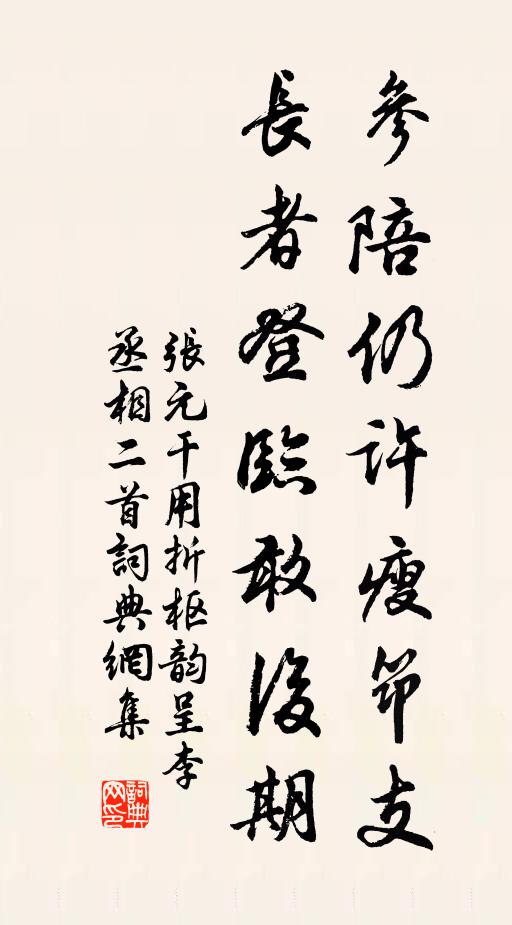 參陪仍许瘦笻支
長者登臨敢後期
張元干用折枢韵呈李
丞相二首詞典網集
詞典
网印